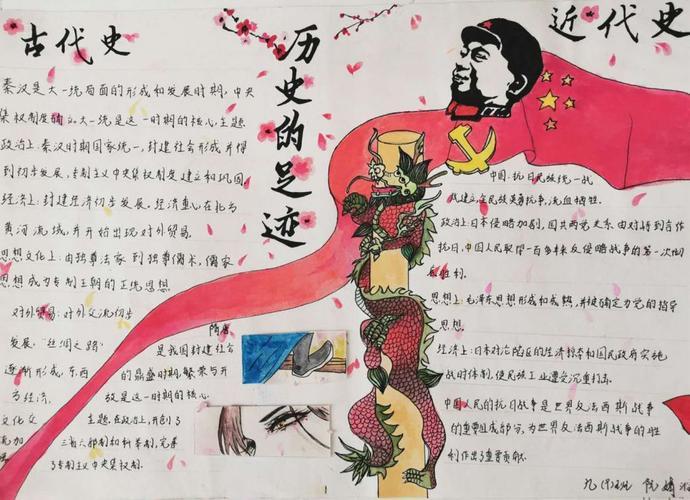 古代史
历史的足迹
近代史
秦汉是大一统局面的形成和发展时期，中央
集权制度的大一统是这一时期的核心主题
政治上：秦汉时期国家统一，封建社会形成并得
到初步发展，专制主义中央集权制度建立和巩固。
经济上：封建经济初步发展。经济重心在北方
黄河流域，并开始出现对外贸易。
思想文化上：由独尊法家到独尊儒术，儒家
思想成为专制王朝的正统思想。
对外贸易：对外交流初步
发展，"丝绸之路"
逐渐形成，东西
方经济，
文化交
流加
隋唐
是我国封建社会
的鼎盛时期，繁荣与开
放是这一时期的核心
主题。在政治上，开创了
三省六部制和科举制，完善
了专制主义中央集权制。
中国：抗日民族统一战
政治上：日本侵略加剧，国共两党关系由对峙到合作
抗日，中国人民取得一百多年来反侵略战争的第一次彻
底胜利。
思想上：毛泽东思想形成和成熟，并被确定为党的指导
思想。
经济上：日本对沦陷区的经济掠夺和国民政府实施
战时体制，使民族工业遭受沉重打击。
中国人民的抗日战争是世界反法西斯战争
的重要组成部分，为世界反法西斯战争的胜
利作出了重要贡献。